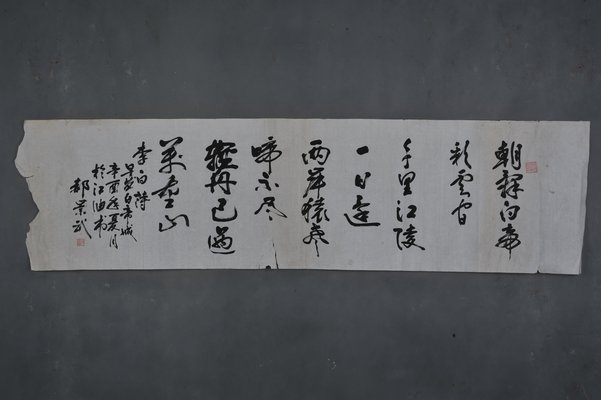 朝辞白帝
彩雲间
千里江陵
一日还
两岸猿声
啼不尽
輕舟已過
萬重山
李白诗
早发白帝城
辛酉年夏月
於江油市